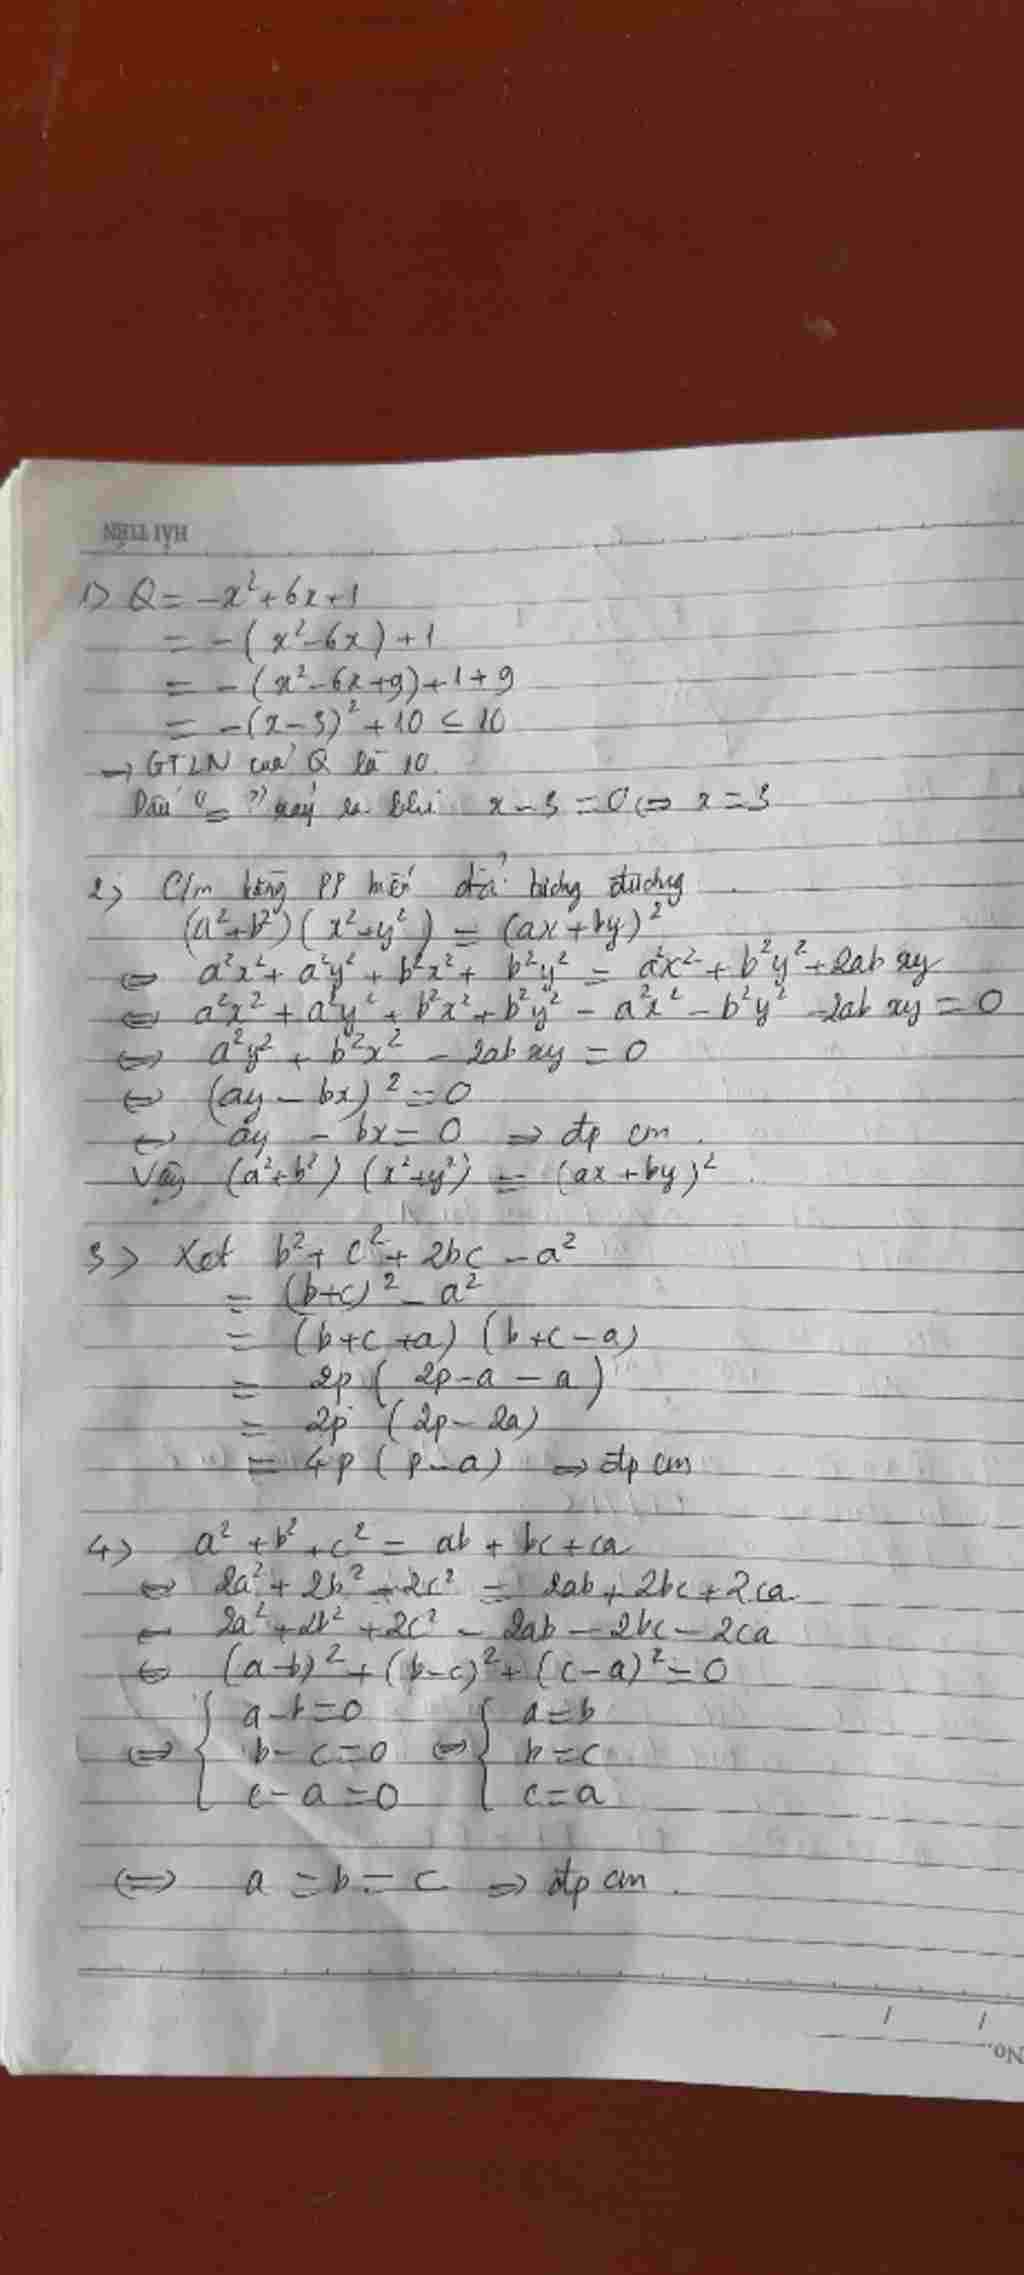 HẢI TIẾN
1) Q = -x² + 6x + 1
= -(x² - 6x) + 1
= -(x² - 6x + 9) + 1 + 9
= -(x - 3)² + 10 ≤ 10
→ GTLN của Q là 10.
Dấu "=" xảy ra khi x - 3 = 0 ⇔ x = 3
2) C/m bằng PP biến đổi tương đương
(a² + b²)(x² + y²) = (ax + by)²
⇔ a²x² + a²y² + b²x² + b²y² = a²x² + b²y² + 2abxy
⇔ a²x² + a²y² + b²x² + b²y² - a²x² - b²y² - 2abxy = 0
⇔ a²y² + b²x² - 2abxy = 0
⇔ (ay - bx)² = 0
⇔ ay - bx = 0 ⇒ đpcm.
Vậy (a² + b²)(x² + y²) = (ax + by)².
3) Xét b² + c² + 2bc - a²
= (b+c)² - a²
= (b + c + a)(b + c - a)
= 2p (2p - a - a)
= 2p (2p - 2a)
= 4p (p - a) ⇒ đpcm
4) a² + b² + c² = ab + bc + ca
⇔ 2a² + 2b² + 2c² = 2ab + 2bc + 2ca
⇔ 2a² + 2b² + 2c² - 2ab - 2bc - 2ca
⇔ (a-b)² + (b-c)² + (c-a)² = 0
a - b = 0 a = b
⇔ { b - c = 0 ⇔ { b = c
c - a = 0 c = a
⇔ a = b = c ⇒ đpcm.
No.